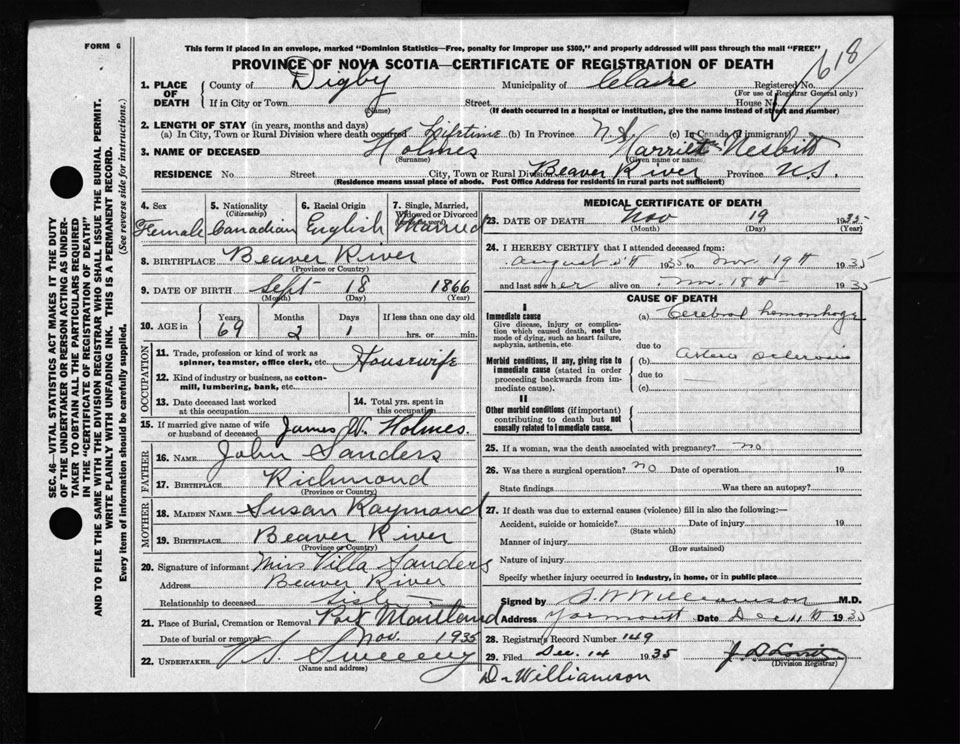 FORM 6
This form if placed in an envelope, marked "Dominion Statistics—Free, penalty for improper use $300," and properly addressed will pass through the mail "FREE"
PROVINCE OF NOVA SCOTIA—CERTIFICATE OF REGISTRATION OF DEATH
618
1. PLACE OF DEATH County of Digby Municipality of Clare Registered No.
(For use of Registrar General only)
If in City or Town Street House No
(Name) (If death occurred in a hospital or institution, give the name instead of street and number)
2. LENGTH OF STAY (in years, months and days)
(a) In City, Town or Rural Division where death occurred Lifetime (b) In Province N.S. (c) In Canada (if immigrant)
3. NAME OF DECEASED Holmes Harriet Nesbitt
(Surname) (Given name or names)
RESIDENCE No Street City, Town or Rural Division Beaver River Province N.S.
(Residence means usual place of abode. Post Office Address for residents in rural parts not sufficient)
SEC. 46—VITAL STATISTICS ACT MAKES IT THE DUTY
OF THE UNDERTAKER OR PERSON ACTING AS UNDER-
TAKER TO OBTAIN ALL THE PARTICULARS REQUIRED
IN THE "CERTIFICATE OF REGISTRATION OF DEATH"
AND TO FILE THE SAME WITH THE DIVISION REGISTRAR WHO SHALL ISSUE THE BURIAL PERMIT.
WRITE PLAINLY WITH UNFADING INK. THIS IS A PERMANENT RECORD.
Every item of information should be carefully supplied. (See reverse side for instructions.)
4. Sex 5. Nationality (Citizenship) 6. Racial Origin 7. Single, Married, Widowed or Divorced
Female Canadian English Married
8. BIRTHPLACE Beaver River
(Province or Country)
9. DATE OF BIRTH Sept 18 1866
(Month) (Day) (Year)
10. AGE in Years Months Days If less than one day old
69 2 1 hrs. or min.
OCCUPATION
11. Trade, profession or kind of work as spinner, teamster, office clerk, etc. Housewife
12. Kind of industry or business, as cotton-mill, lumbering, bank, etc.
13. Date deceased last worked at this occupation 14. Total yrs. spent in this occupation
15. If married give name of wife or husband of deceased James W. Holmes.
FATHER
16. NAME John Sanders
17. BIRTHPLACE Richmond
(Province or Country)
MOTHER
18. MAIDEN NAME Susan Raymond
19. BIRTHPLACE Beaver River
(Province or Country)
20. Signature of informant Miss Villa Sanders
Address Beaver River
Relationship to deceased Sister
21. Place of Burial, Cremation or Removal Port Maitland
Date of burial or removal Nov. 1935
22. UNDERTAKER V S Sweeny
(Name and address)
MEDICAL CERTIFICATE OF DEATH
23. DATE OF DEATH Nov 19 1935
(Month) (Day) (Year)
24. I HEREBY CERTIFY that I attended deceased from:
August 5th 1935 to Nov. 19th 1935
and last saw her alive on Nov. 18th 1935
CAUSE OF DEATH
I
Immediate cause (a) Cerebral hemorrhage
Give disease, injury or complication which caused death, not the mode of dying, such as heart failure, asphyxia, asthenia, etc.
due to
Morbid conditions, if any, giving rise to immediate cause (stated in order proceeding backwards from immediate cause). (b) arterio sclerosis
due to
(c)
II
Other morbid conditions (if important) contributing to death but not causally related to immediate cause.
25. If a woman, was the death associated with pregnancy? no
26. Was there a surgical operation? no Date of operation 19
State findings Was there an autopsy?
27. If death was due to external causes (violence) fill in also the following:—
Accident, suicide or homicide? Date of injury 19
(State which)
Manner of injury
(How sustained)
Nature of injury
Specify whether injury occurred in industry, in home, or in public place
Signed by S. W. Williamson M.D.
Address Yarmouth Date Dec 11th 1935
28. Registrar's Record Number 149
29. Filed Dec. 14 1935
(Division Registrar)
Dr Williamson